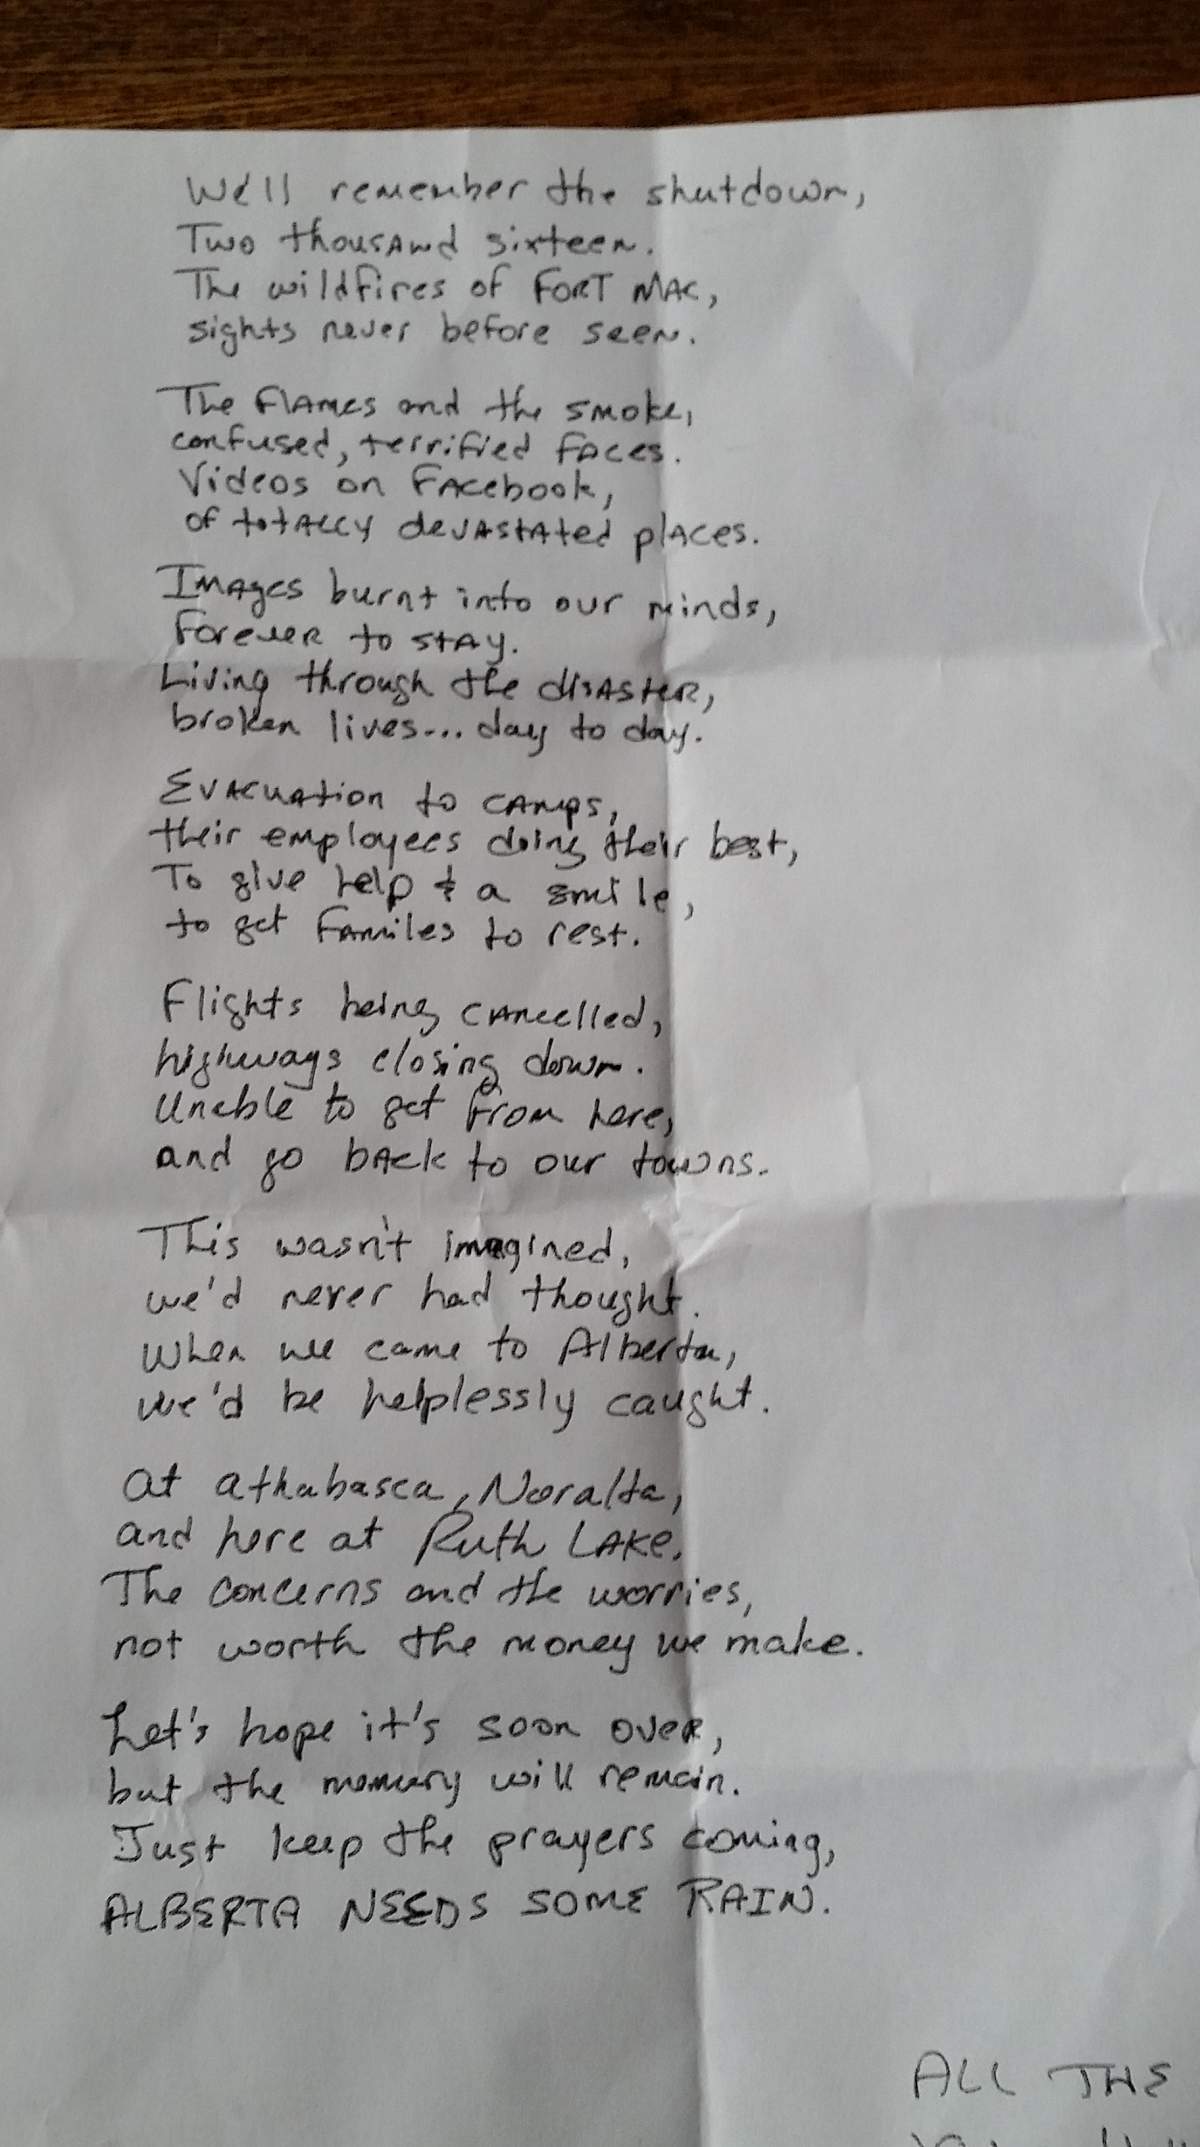 We'll remember the shutdown,
Two thousand sixteen.
The wildfires of FORT MAC,
sights never before seen.
The flames and the smoke,
confused, terrified faces.
Videos on Facebook,
of totally devastated places.
Images burnt into our minds,
forever to stay.
Living through the disaster,
broken lives... day to day.
Evacuation to camps,
their employees doing their best,
To give help & a smile,
to get familes to rest.
Flights being cancelled,
highways closing down.
Unable to get from here,
and go back to our towns.
This wasn't imagined,
we'd never had thought.
When we came to Alberta,
we'd be helplessly caught.
at athabasca, Noralta,
and here at Ruth Lake.
The concerns and the worries,
not worth the money we make.
Let's hope it's soon over,
but the memory will remain.
Just keep the prayers coming,
ALBERTA NEEDS SOME RAIN.
ALL THE